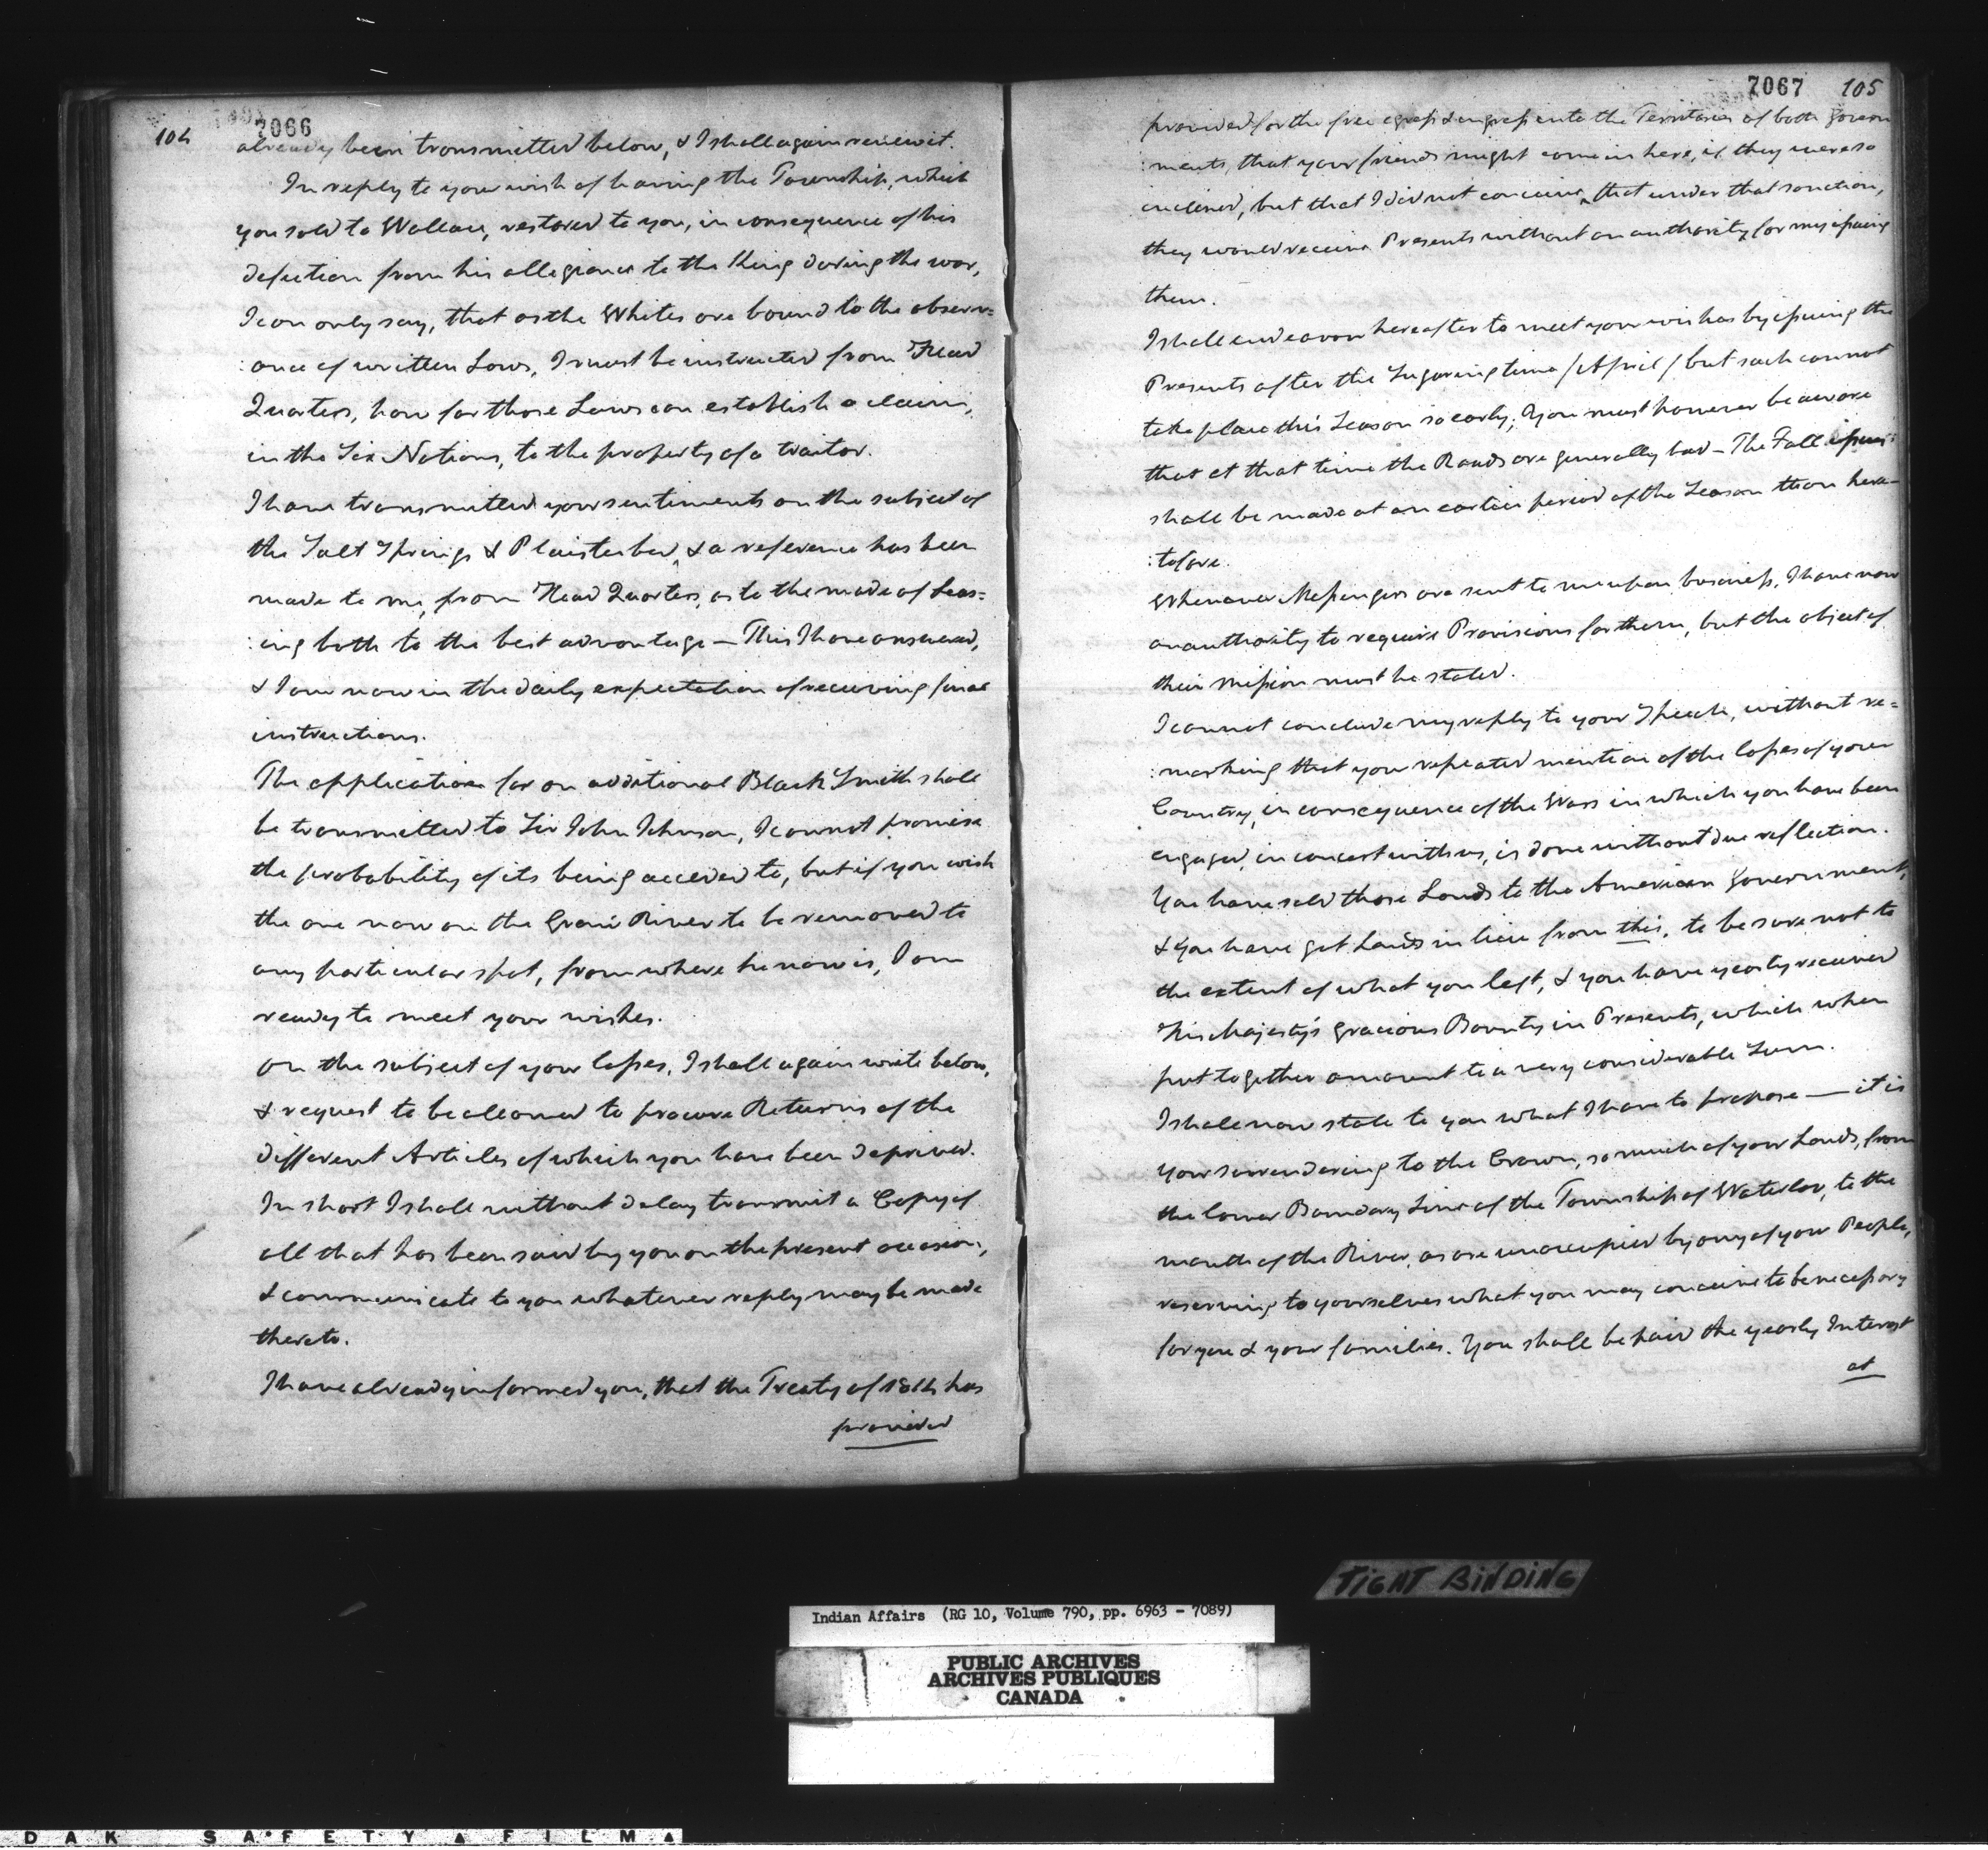 104
7066
already been transmitted below, & I shall again renew it.
In reply to your wish of having the Township, which
you sold to Wallace, restored to you, in consequence of his
defection from his allegiance to the King during the war,
I can only say, that as the Whites are bound to the observ=
:ance of written Laws, I must be instructed from Head
Quarters, how far those Laws can establish a claim,
in the Six Nations, to the property of a traitor.
I have transmitted your sentiments on the subject of
the Salt Springs & Plaister bed, & a reference has been
made to me, from Head Quarters, as to the mode of Leas=
:ing both to the best advantage — This I have answered,
& I am now in the daily expectation of receiving final
instructions.
The application for an additional Black Smith shall
be transmitted to Sir John Johnson, I cannot promise
the probability of its being acceded to, but if you wish
the one now on the Grand River to be removed to
any particular spot, from where he now is, I am
ready to meet your wishes.
On the subject of your losses, I shall again write below,
& request to be allowed to procure Returns of the
different Articles of which you have been deprived.
In short I shall without delay transmit a Copy of
all that has been said by you on the present occasion,
& communicate to you whatever reply may be made
thereto.
I have already informed you, that the Treaty of 1814 has
provided
7067
105
provided for the free egress & ingress into the Territories of both Govern
:ments, that your friends might come in here, if they were so
inclined, but that I did not conceive, that under that sanction,
they would receive Presents without an authority for my issuing
them.
I shall endeavour hereafter to meet your wishes by issuing the
Presents after the Sugaring time /April/ but such cannot
take place this Season so early; You must however be aware
that at that time the Roads are generally bad — The Fall issues
shall be made at an earlier period of the Season than here=
:tofore.
Whenever Messengers are sent to me upon business, I have now
an authority to require Provisions for them, but the object of
their mission must be stated.
I cannot conclude my reply to your Speech, without re=
:marking that your repeated mention of the losses of your
Country, in consequence of the Wars in which you have been
engaged, in concert with us, is done without due reflection.
You have sold those Lands to the American Government,
& you have got Lands in lieu from this, to be sure not to
the extent of what you left, & you have yearly received
His Majesty's gracious Bounty in Presents, which when
put together amount to a very considerable Sum.
I shall now state to you what I have to propose — it is
your surrendering to the Crown, so much of your Lands, from
the lower Boundary Line of the Township of Waterloo, to the
mouth of the River, as are unoccupied by any of your People,
reserving to yourselves what you may conceive to be necessary
for you & your families. You shall be paid the yearly Interest
at
TIGHT BINDING
Indian Affairs (RG 10, Volume 790, pp. 6963 - 7089)
PUBLIC ARCHIVES
ARCHIVES PUBLIQUES
CANADA
DAK SAFETY FILM